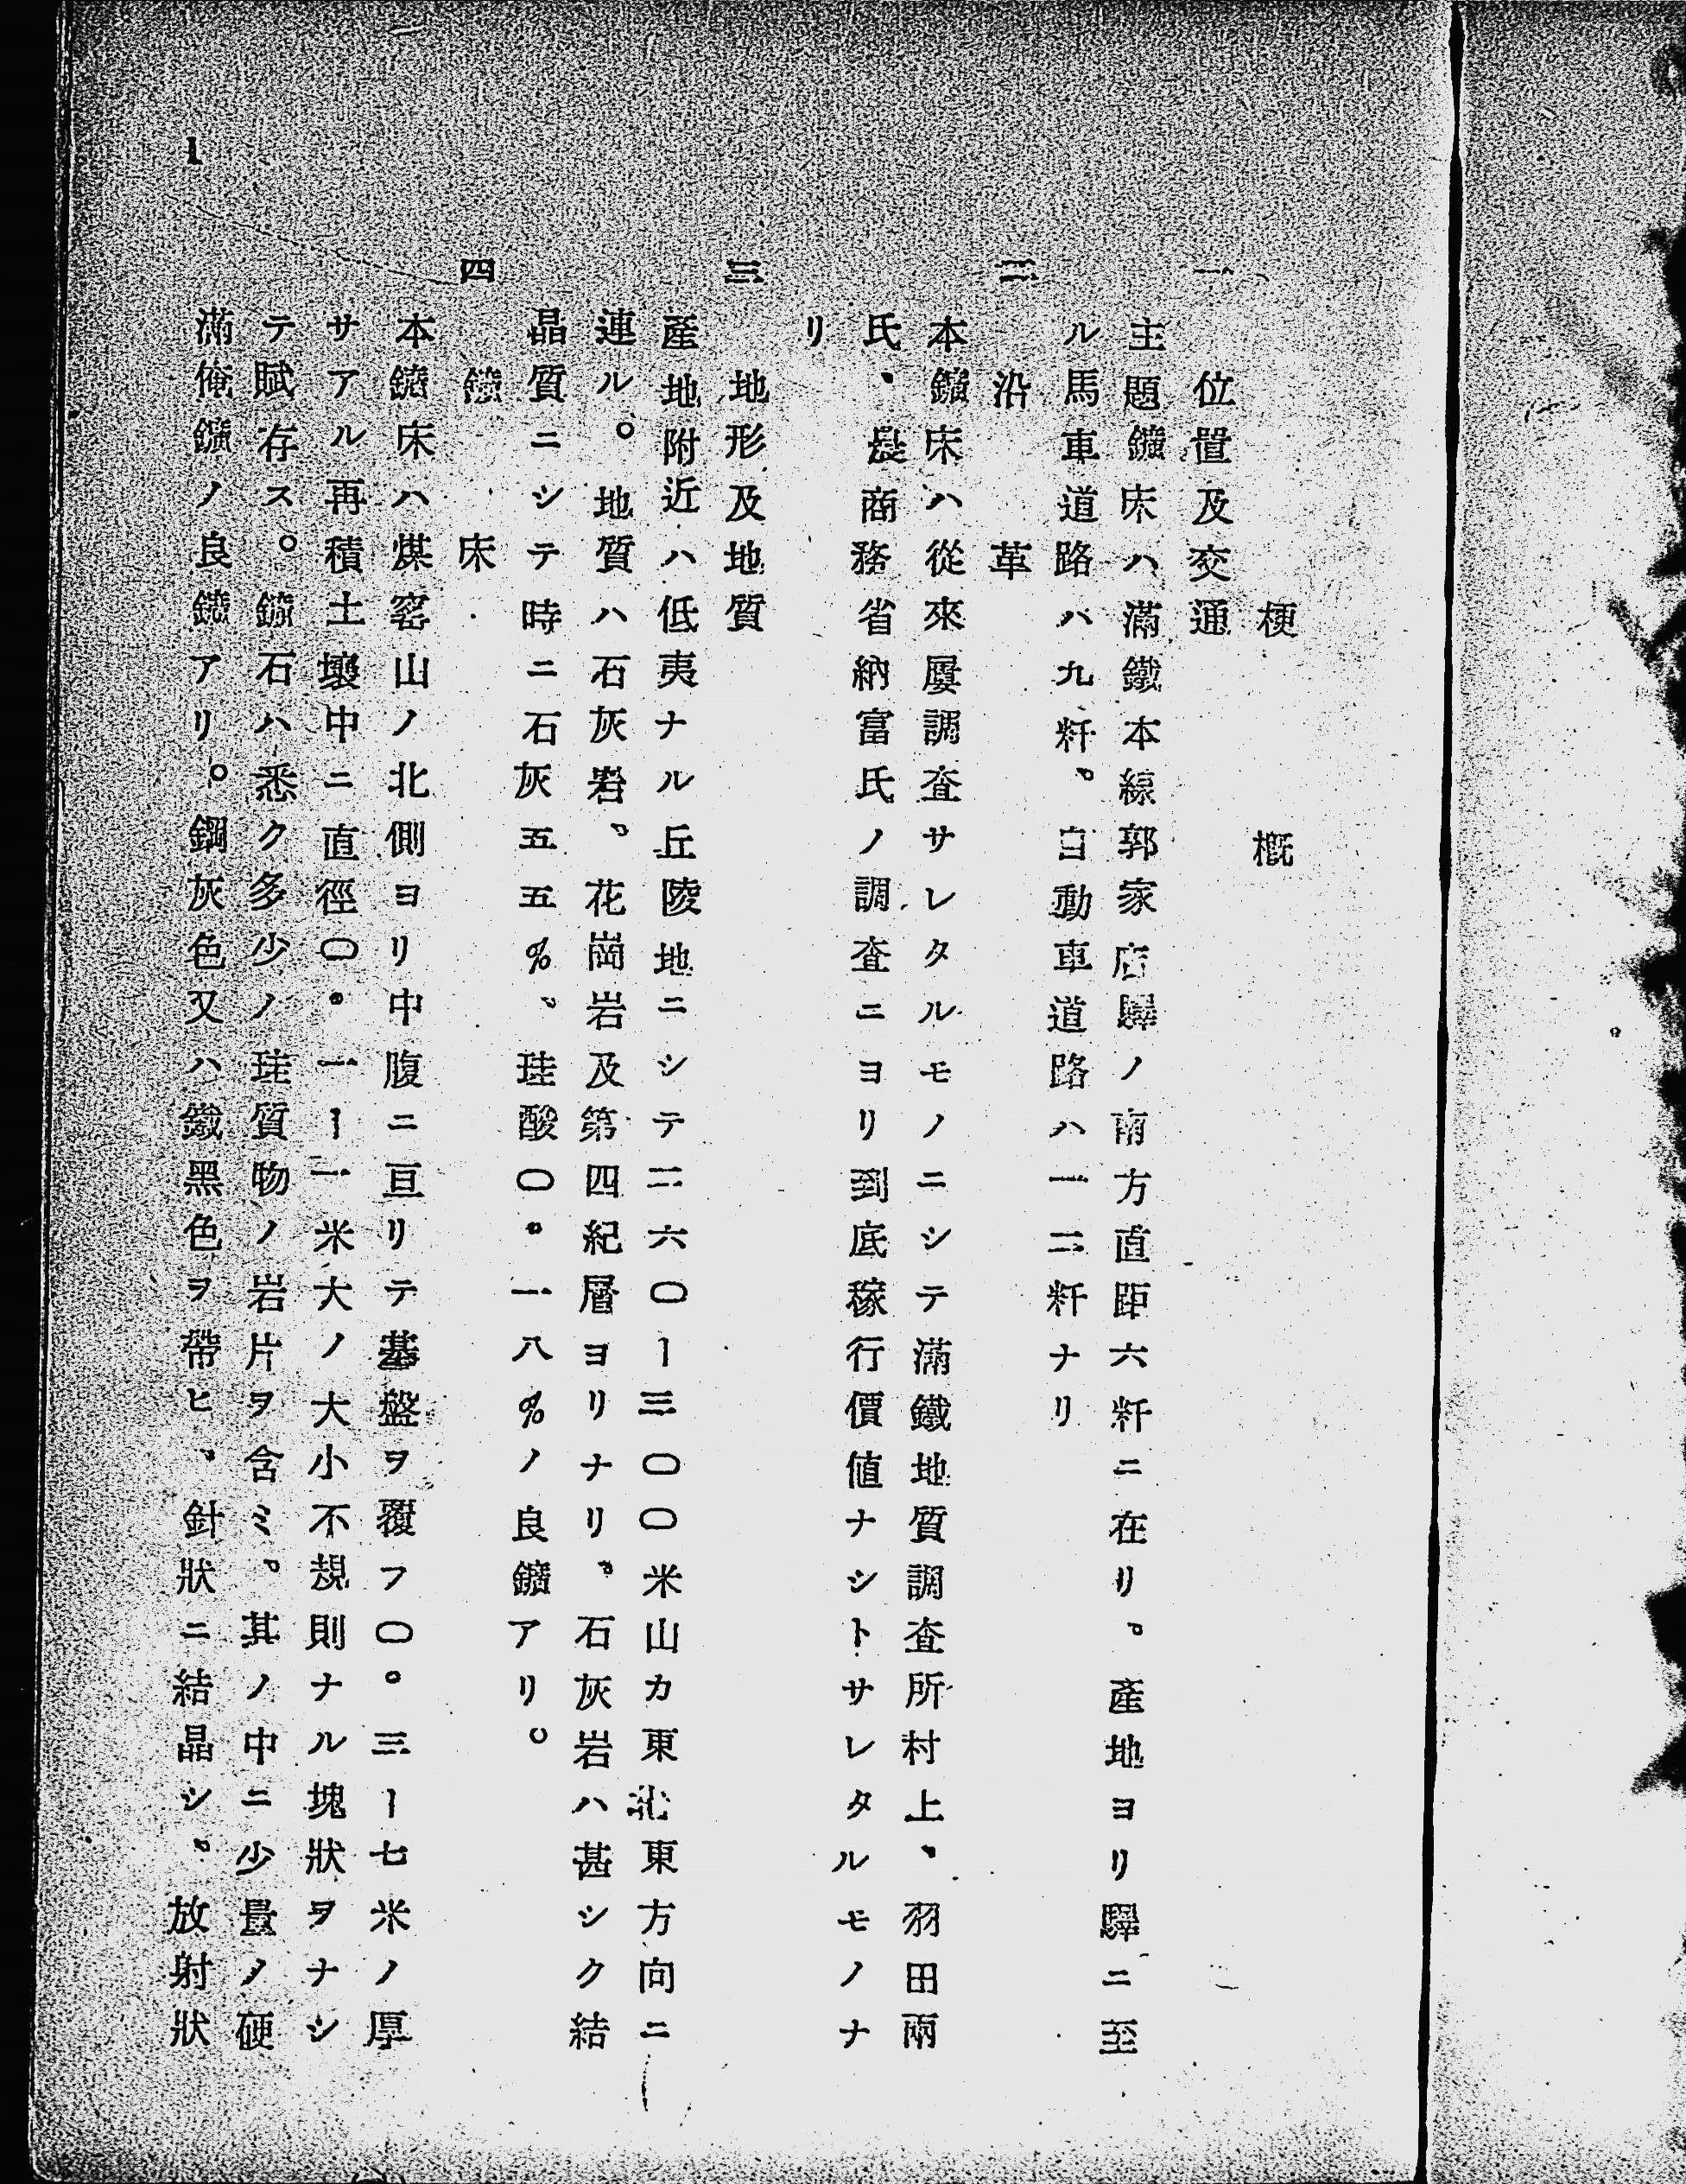 梗概
一、位置及交通
主題鑛床ハ滿鐵本線郭家店驛ノ南方直距六粁ニ在リ。産地ヨリ驛ニ至
ル馬車道路ハ九粁。自動車道路ハ一二粁ナリ
二 沿革
本鑛床ハ從來屢調査サレタルモノニシテ滿鐵地質調査所村上、羽田兩
氏、農商務省納富氏ノ調査ニヨリ到底稼行價値ナシトサレタルモノナ
リ
三 地形及地質
産地附近ハ低夷ナル丘陵地ニシテ二六〇ー三〇〇米山カ東北東方向ニ
連ル。地質ハ石灰岩、花崗岩及第四紀層ヨリナリ。石灰岩ハ甚シク結
晶質ニシテ時ニ石灰五五%、珪酸〇。一八%ノ良鑛アリ。
四 鑛床
本鑛床ハ煤窰山ノ北側ヨリ中腹ニ亘リテ基盤ヲ覆フ〇。三ー七米ノ厚
サアル再積土壤中ニ直徑〇。一ー一米大ノ大小不規則ナル塊狀ヲナシ
テ賦存ス。鑛石ハ悉ク多少ノ珪質物ノ岩片ヲ含ミ。其ノ中ニ少量ノ硬
滿俺鑛ノ良鑛アリ。鋼灰色又ハ鐵黑色ヲ帶ヒ、針狀ニ結晶シ。放射狀
1